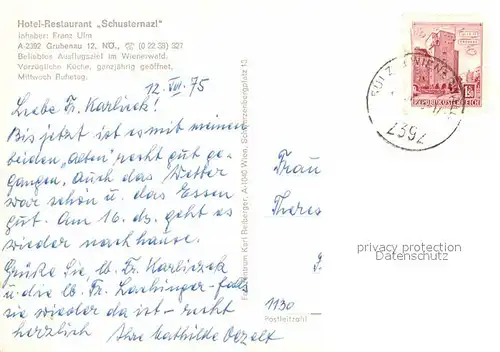 Hotel-Restaurant „Schusternazl"
Inhaber: Franz Ulm
A-2392 Grubenau 12, NÖ., ☏ (0 22 38) 327
Beliebtes Ausflugsziel im Wienerwald.
Vorzügliche Küche, ganzjährig geöffnet,
Mittwoch Ruhetag.
12. VII. 75
Liebe Fr. Karlicek!
Bis jetzt ist es mit meinen
beiden „Alten" recht gut ge-
gangen. Auch das Wetter
war schön u. das Essen
gut. Am 16. ds. geht es
wieder nach hause.
Grüße Sie, lb. Fr. Karlicek
u. die lb. Fr. - falls
sie wieder da ist - recht
herzlich Ihre Mathilde
Karl Reiberger, A-1040 Wien, Schwarzenbergplatz 13
REPUBLIK ÖSTERREICH
SULZ WIENERWALD
2392
Frau
Theres
1130
Postleitzahl
privacy protection
Datenschutz